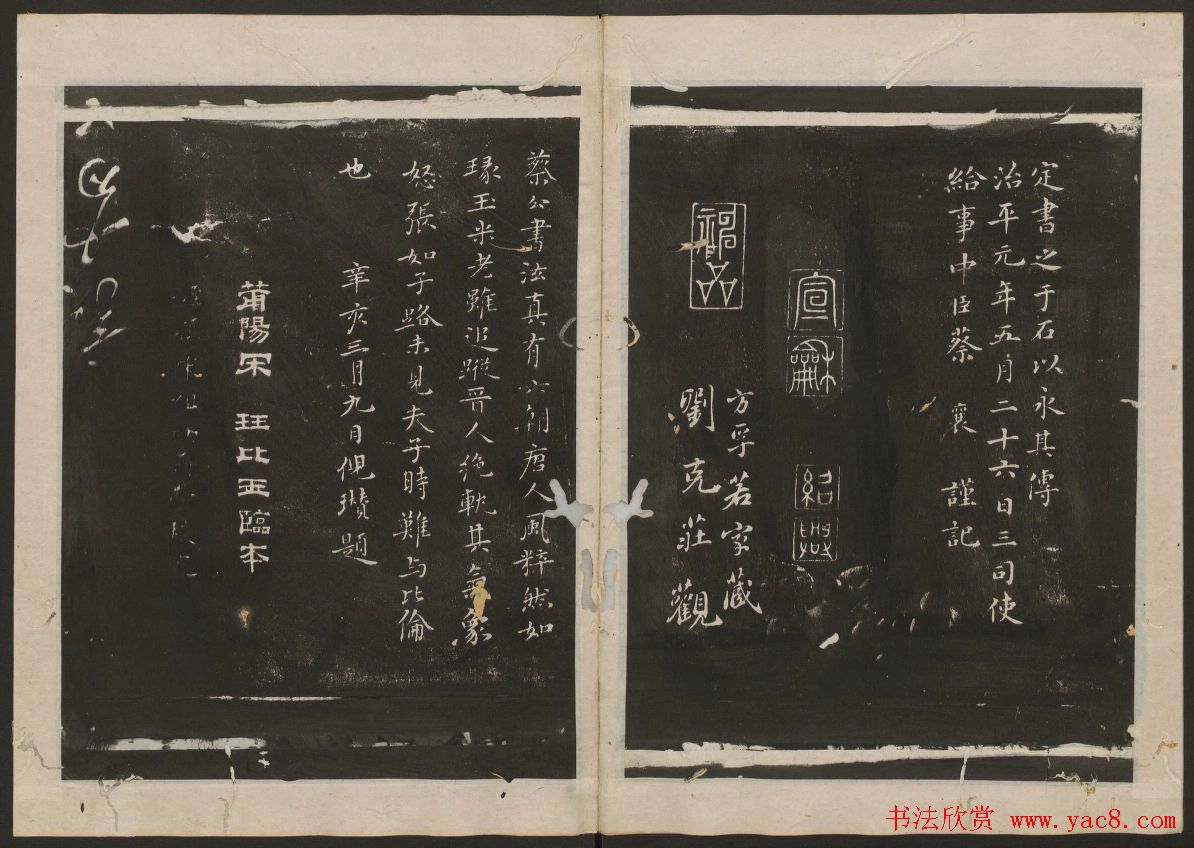 定書之于石以永其傳
治平元年五月二十六日三司使
給事中臣蔡襄謹記
宣
龢
紹興
方孚若家藏
劉克莊觀
蔡公書法真有六朝唐人風粹然如
琢玉米老雖追蹤晉人絶軌其氣象
怒張如子路未見夫子時難与比倫
也
辛亥三月九日倪瓚題
莆陽宋珏比玉臨本
书法欣赏 www.yac8.com